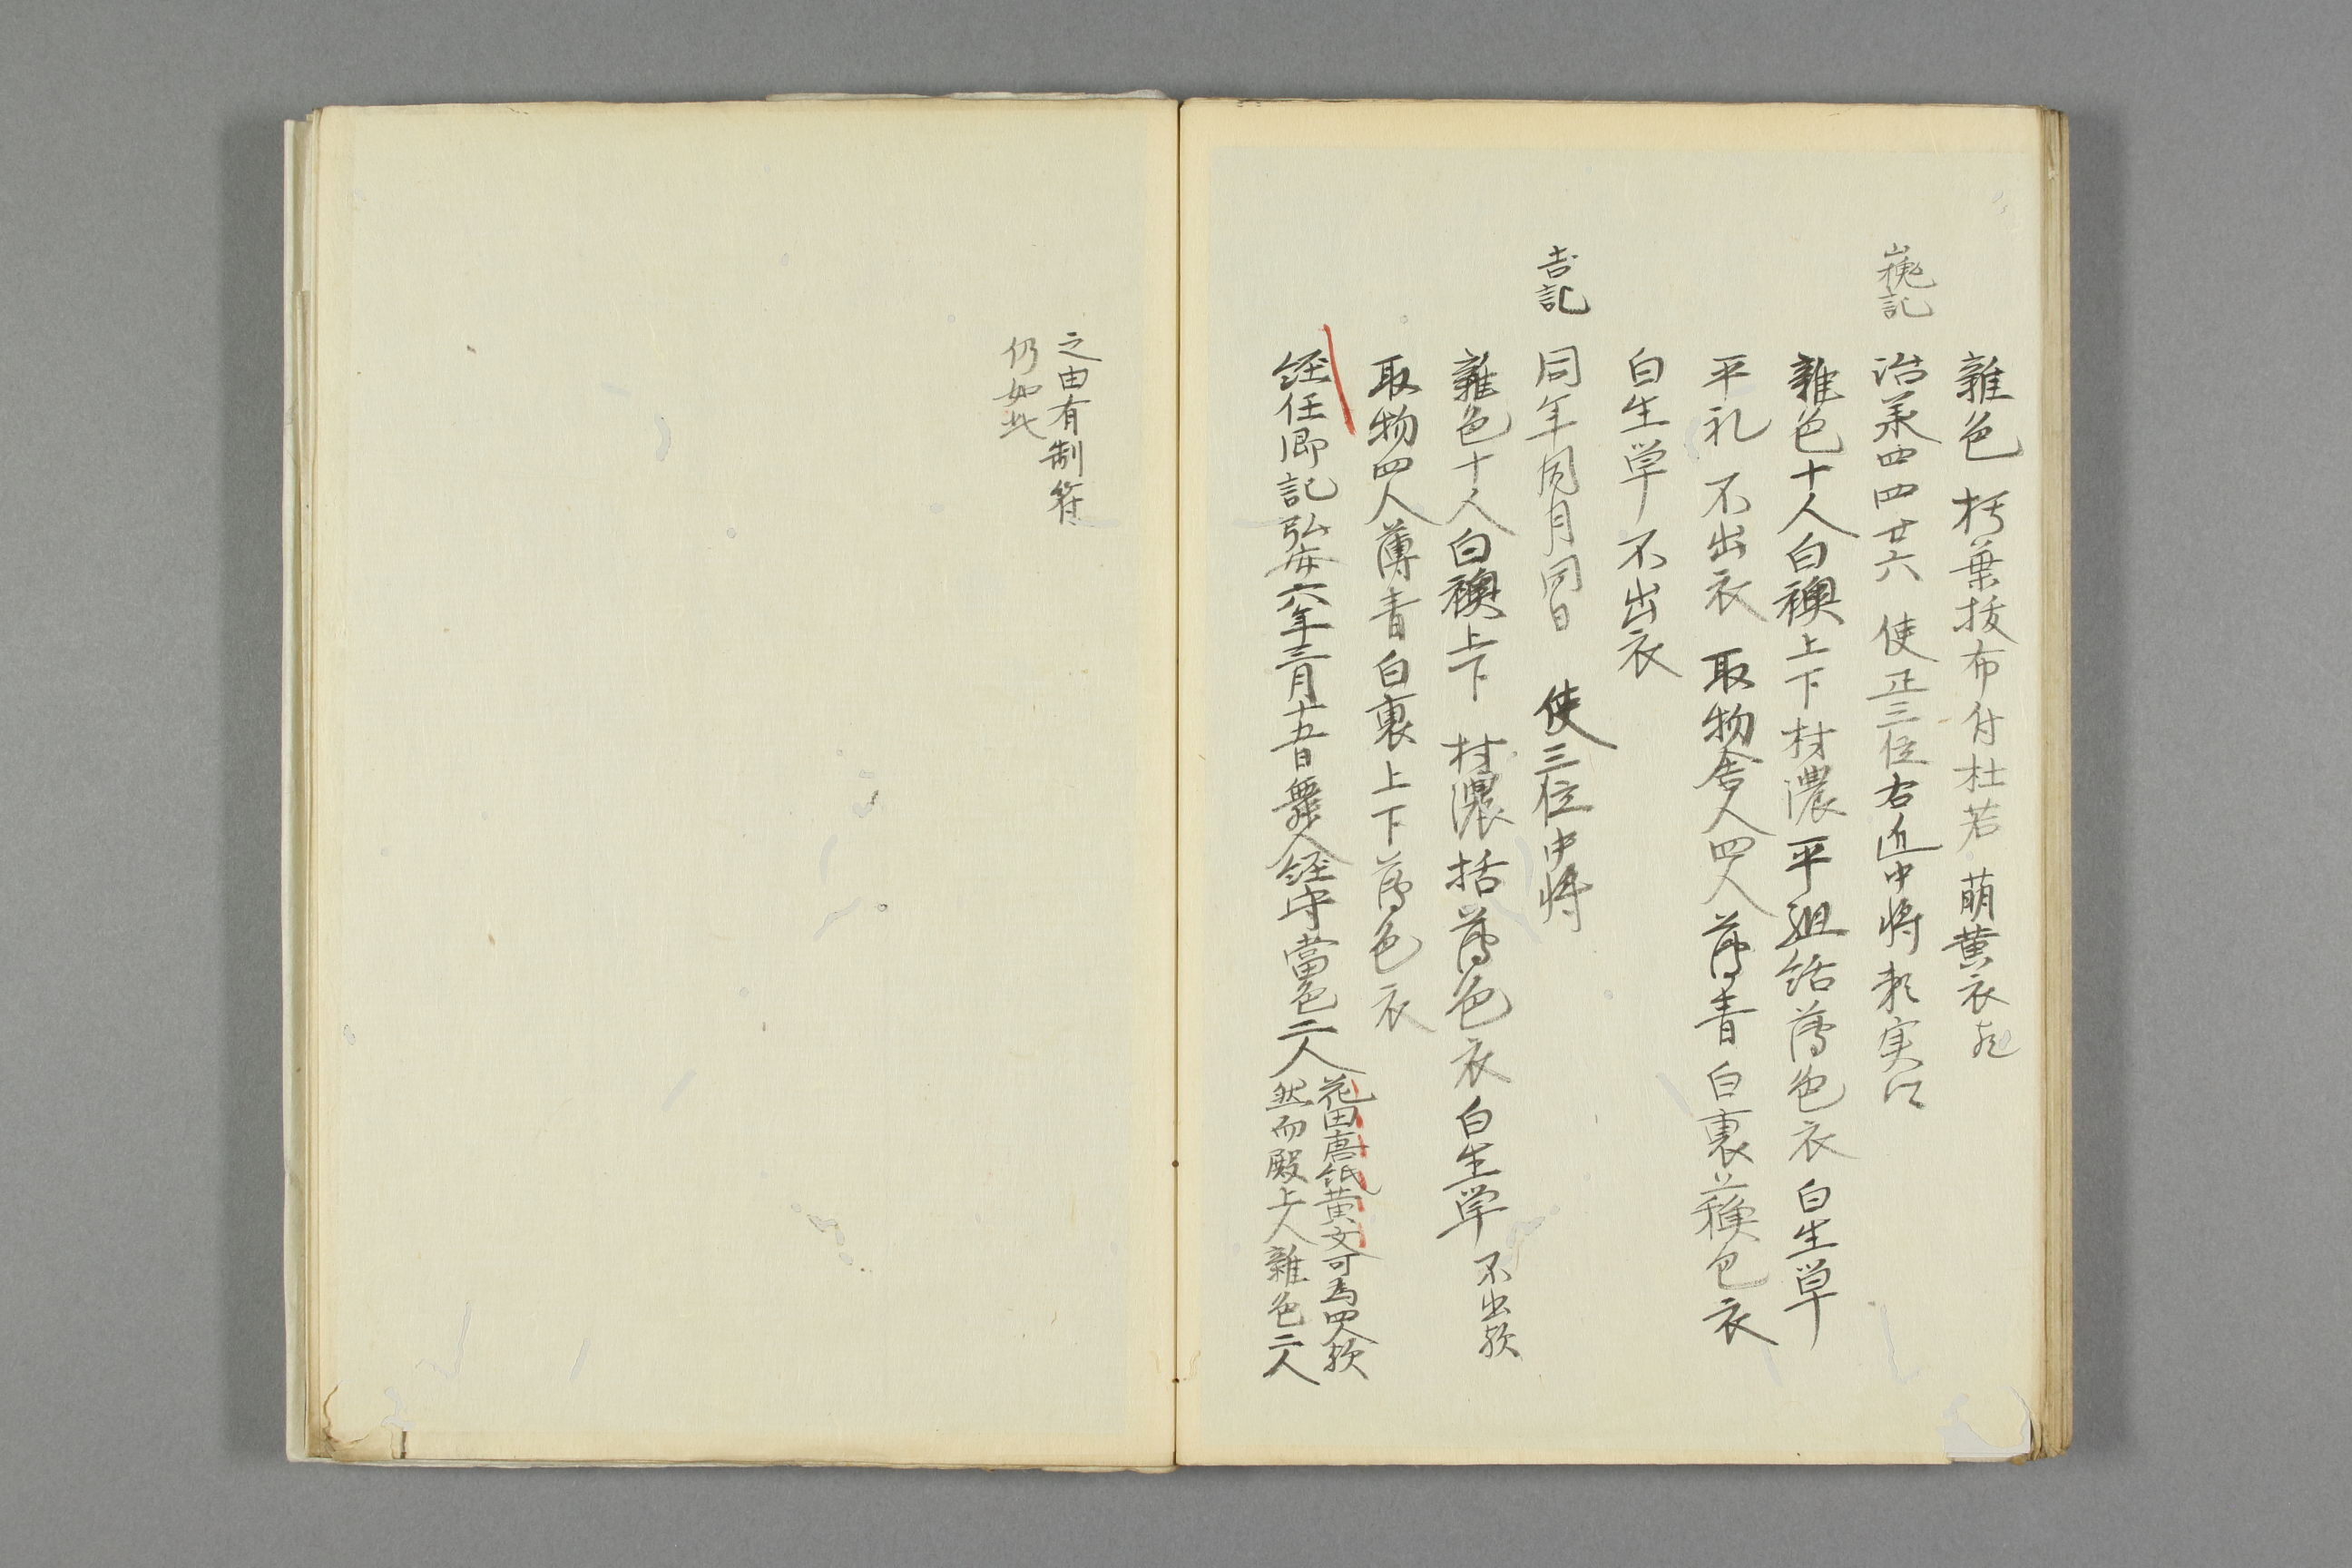 雜色 朽葉抜布付杜若 萌黄衣
槐記
治承四四廿六 使正三位右近中将
雜色十人白襖上下村濃平組括薄色衣 白生單
平礼 不出衣 取物舎人四人薄青 白裏 蘓色衣
白生單 不出衣
吉記
同年同月同日 使三位中将
雜色十人白襖上下 村濃括薄色衣 白生單 不出歟
取物四人薄青 白裏 上下薄色衣
経任卿記弘安六年三月十五日舞人経守當色二人
花田唐紙黄文可為四人歟
然而殿上人雜色二人
之由有制符
仍如此